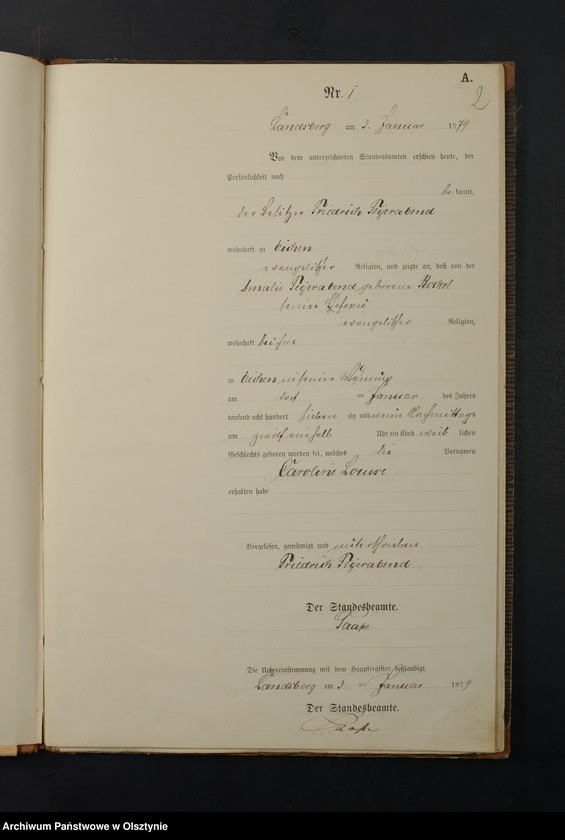 A.
2
Nr. 1
Landsberg am 3. Januar 1879
Vor dem unterzeichneten Standesbeamten erschien heute, der
Persönlichkeit nach
be kannt,
der Besitzer Friedrich Feyerabend
wohnhaft zu Eichen
evangelischer Religion, und zeigte an, daß von der
Amalie Feyerabend geborene
seiner Ehefrau
evangelischer Religion,
wohnhaft bei ihm
zu Eichen in seiner Wohnung
am ten Januar des Jahres
tausend acht hundert sieben zig und neun Nachmittags
um zwölf einhalb Uhr ein Kind weib lichen
Geschlechts geboren worden sei, welches die Vornamen
Caroline Louise
erhalten habe
Vorgelesen, genehmigt und unterschrieben
Friedrich Feyerabend
Der Standesbeamte.
Die Uebereinstimmung mit dem Hauptregister beglaubigt
Landsberg am 3 ten Januar 1879
Der Standesbeamte.
Archiwum Państwowe w Olsztynie